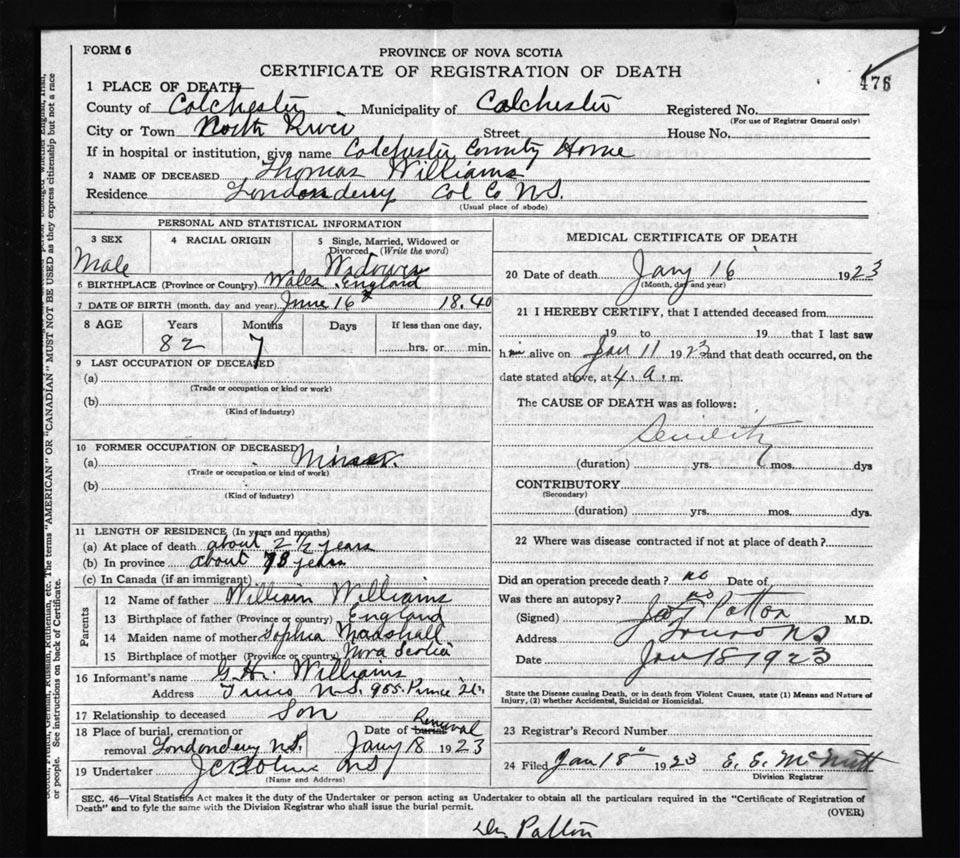 FORM 6
PROVINCE OF NOVA SCOTIA
CERTIFICATE OF REGISTRATION OF DEATH
476
1 PLACE OF DEATH
County of Colchester Municipality of Colchester Registered No.
(For use of Registrar General only)
City or Town North River Street House No.
If in hospital or institution, give name Colchester County Home
2 NAME OF DECEASED Thomas Williams
Residence Londonderry Col Co N.S.
(Usual place of abode)
PERSONAL AND STATISTICAL INFORMATION
3 SEX Male
4 RACIAL ORIGIN
5 Single, Married, Widowed or
Divorced (Write the word)
Widower
6 BIRTHPLACE (Province or Country) Wales England
7 DATE OF BIRTH (month, day and year) June 16th 1840
8 AGE Years Months Days If less than one day,
82 7 hrs. or min.
9 LAST OCCUPATION OF DECEASED
(a)
(Trade or occupation or kind or work)
(b)
(Kind of industry)
10 FORMER OCCUPATION OF DECEASED
(a) Miner
(Trade or occupation or kind of work)
(b)
(Kind of industry)
11 LENGTH OF RESIDENCE (In years and months)
(a) At place of death about 2 1/2 years
(b) In province about 78 years
(c) In Canada (if an immigrant)
Parents
12 Name of father William Williams
13 Birthplace of father (Province or country) England
14 Maiden name of mother Sophia Marshall
15 Birthplace of mother (Province or country) Nova Scotia
16 Informant's name G.H. Williams
Address Truro N.S. 955 Prince St.
17 Relationship to deceased Son
18 Place of burial, cremation or Date of burial Removal
removal Londonderry N.S. Jany 18 1923
19 Undertaker N.S.
(Name and Address)
MEDICAL CERTIFICATE OF DEATH
20 Date of death Jany 16 1923
(Month, day and year)
21 I HEREBY CERTIFY, that I attended deceased from
19 to 19 that I last saw
him alive on Jan 11 1923 and that death occurred, on the
date stated above, at 4. a. m.
The CAUSE OF DEATH was as follows:
Senility
(duration) yrs. mos. dys
CONTRIBUTORY
(Secondary)
(duration) yrs. mos. dys.
22 Where was disease contracted if not at place of death?
Did an operation precede death? no Date of
Was there an autopsy? no
(Signed) Patton M.D.
Address Truro NS
Date Jan 18 1923
State the Disease causing Death, or in death from Violent Causes, state (1) Means and Nature of
Injury, (2) whether Accidental, Suicidal or Homicidal.
23 Registrar's Record Number
24 Filed Jan 18th 1923 E. E. McNutt
Division Registrar
SEC. 46—Vital Statistics Act makes it the duty of the Undertaker or person acting as Undertaker to obtain all the particulars required in the "Certificate of Registration of
Death" and to fyle the same with the Division Registrar who shall issue the burial permit.
(OVER)
Dr Patton
The terms "AMERICAN" OR "CANADIAN" MUST NOT BE USED as they express citizenship but not a race
or people. See instructions on back of Certificate.